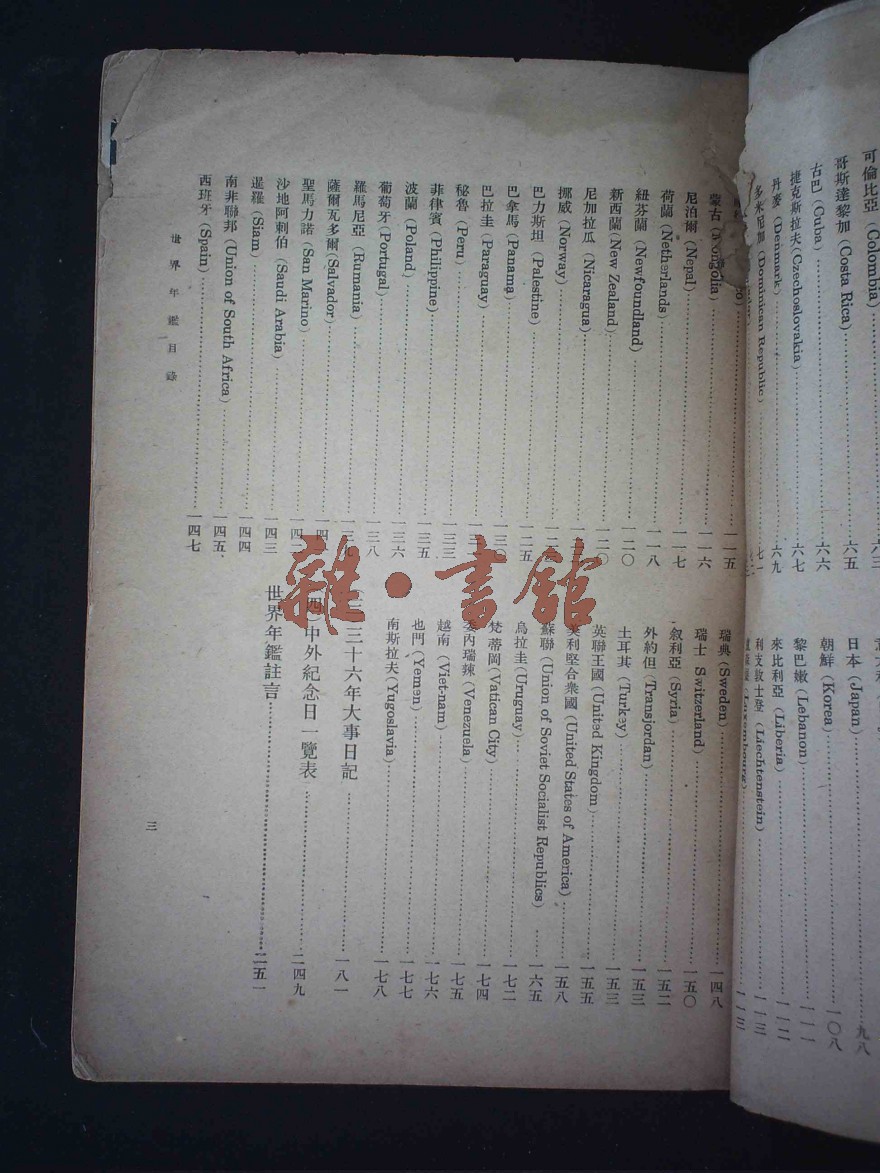 可倫比亞 (Colombia) 六三
哥斯達黎加 (Costa Rica) 六五
古巴 (Cuba) 六六
捷克斯拉夫 (Czechoslovakia) 六七
丹麥 (Denmark) 六九
多米尼加 (Dominican Republic) 七一
日本 (Japan) 九八
朝鮮 (Korea) 一〇八
黎巴嫩 (Lebanon) 一一一
來比利亞 (Liberia) 一一二
利支敦士登 (Liechtenstein) 一一三
(Luxembourg) 一一三
一一五
蒙古 (Mongolia) 一一六
尼泊爾 (Nepal) 一一七
荷蘭 (Netherlands) 一一八
紐芬蘭 (Newfoundland) 一二〇
新西蘭 (New Zealand) 一二〇
尼加拉瓜 (Nicaragua)
挪威 (Norway)
巴力斯坦 (Palestine) 一二五
巴拿馬 (Panama)
巴拉圭 (Paraguay)
秘魯 (Peru) 一三三
菲律賓 (Philippine) 一三五
波蘭 (Poland) 一三六
葡萄牙 (Portugal) 一三八
羅馬尼亞 (Rumania)
薩爾瓦多爾 (Salvador)
聖馬力諾 (San Marino)
沙地阿剌伯 (Saudi Arabia) 一四三
暹羅 (Siam) 一四四
南非聯邦 (Union of South Africa) 一四五
西班牙 (Spain) 一四七
瑞典 (Sweden) 一四八
瑞士 Switzerland) 一五〇
叙利亞 (Syria) 一五二
外約但 (Transjordan) 一五三
土耳其 (Turkey) 一五三
英聯王國 (United Kingdom) 一五五
美利堅合衆國 (United States of America) 一五八
蘇聯 (Union of Soviet Socialist Republics) 一六五
烏拉圭 (Uruguay) 一七二
梵蒂岡 (Vatican City) 一七四
委內瑞辣 (Venezuela) 一七五
越南 (Viet-nam) 一七六
也門 (Yemen) 一七七
南斯拉夫 (Yugoslavia) 一七八
三十六年大事日記 一八一
(四) 中外紀念日一覽表 二四九
世界年鑑註言 二五一
世界年鑑目錄
三
雜·書館